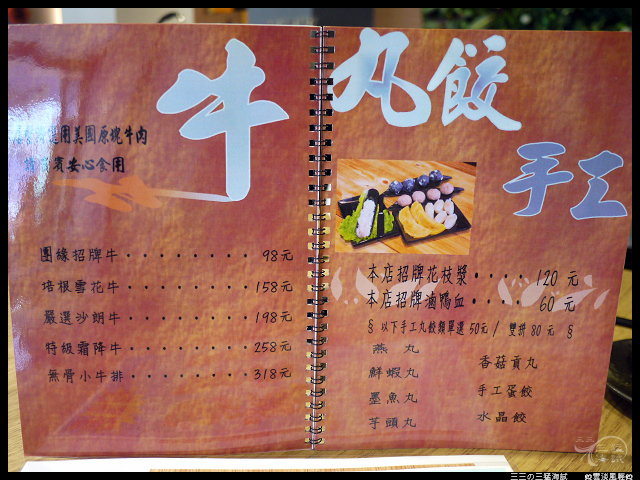 牛
選用美國原塊牛肉
賓安心食用
團緣招牌牛‧‧‧‧‧‧‧‧98元
培根雪花牛‧‧‧‧‧‧‧‧158元
嚴選沙朗牛‧‧‧‧‧‧‧‧198元
特級霜降牛‧‧‧‧‧‧‧‧258元
無骨小牛排‧‧‧‧‧‧‧‧318元
丸餃
手工
本店招牌花枝漿‧‧‧‧120 元
本店招牌滷鴨血‧‧‧‧60 元
§ 以下手工丸餃類單選 50元 / 雙拼 80 元 §
燕 丸
鮮蝦丸
墨魚丸
芋頭丸
香菇貢丸
手工蛋餃
水晶餃
三三の三猛海試
雲淡風輕